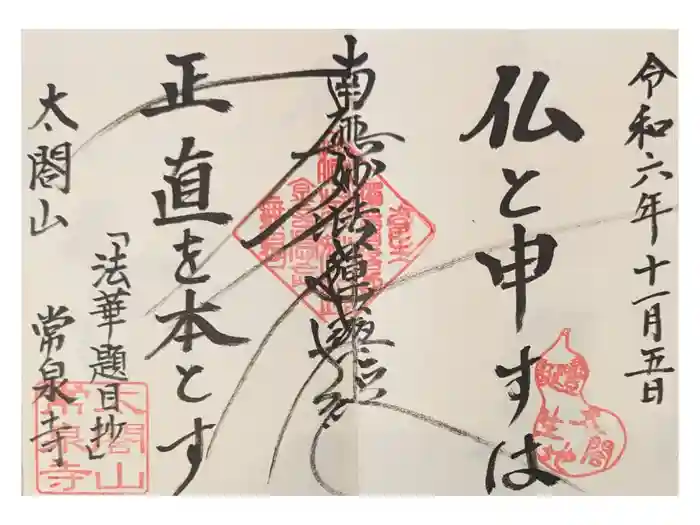 令和六年十一月五日
仏と申すは
太閤
生地
南無妙法蓮華経
正直を本とす
「法華題目抄」
太閤山 常泉寺
太閤山
常泉寺